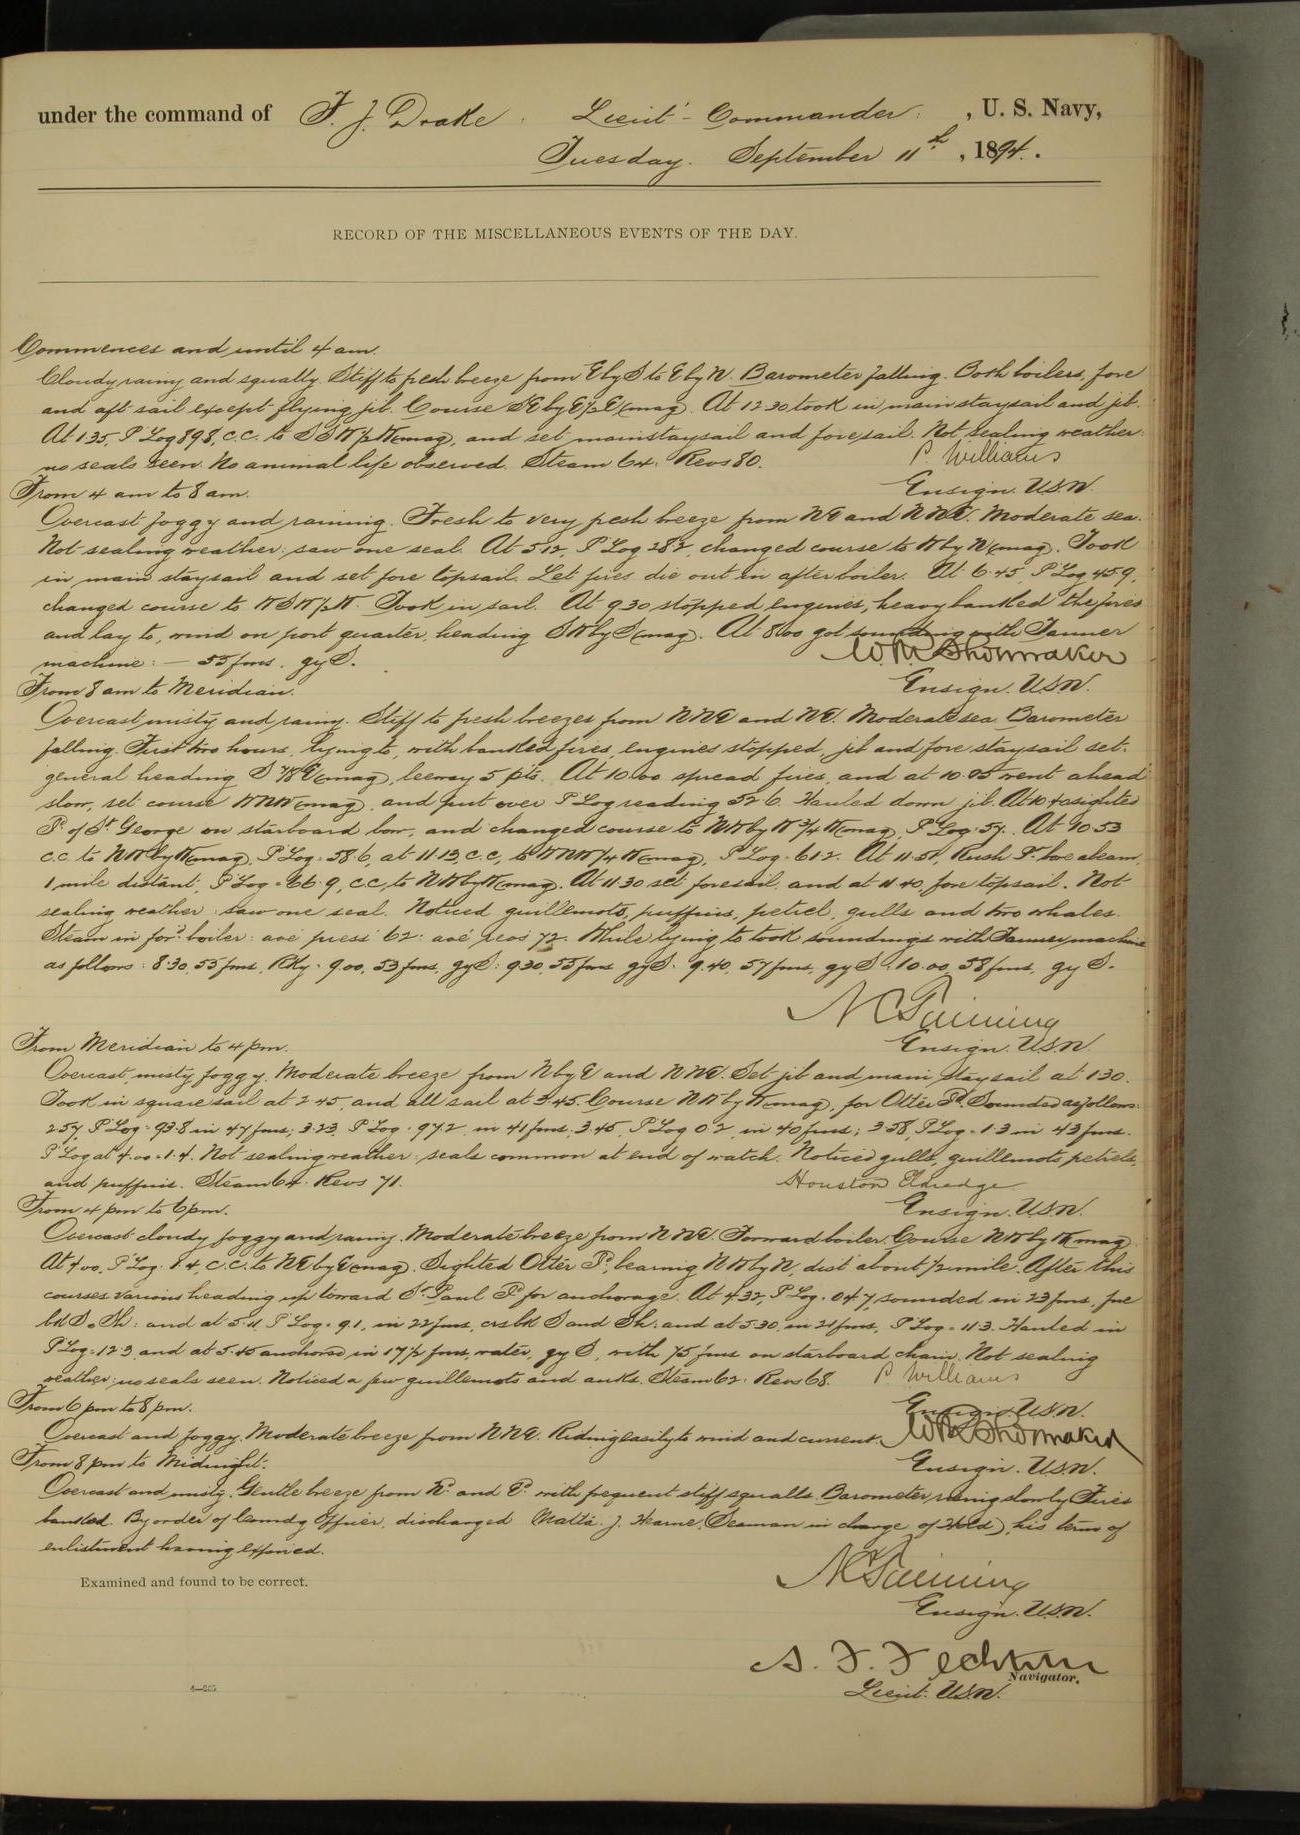 under the command of F. J. Drake, Lieut-Commander, U. S. Navy,
Tuesday. September 11th, 1894.
RECORD OF THE MISCELLANEOUS EVENTS OF THE DAY.
Commences and until 4 am.
Cloudy rainy and squally. Stiff to fresh breeze from E by S to E by N. Barometer falling. Both boilers, fore
and aft sail except flying jib. Course SE by E 1/2 E (mag). At 12.30 took in main staysail and jib.
At 1.35, P Log 89.8, c.c. to SSW 1/2 W (mag), and set main staysail and foresail. Not sealing weather:
no seals seen. No animal life observed. Steam 64. Revs 80. P. Williams
Ensign. U.S.N.
From 4 am to 8 am.
Overcast foggy and raining. Fresh to very fresh breeze from NE and NNE. Moderate sea.
Not sealing weather: saw one seal. At 5.12, P Log 28.2, changed course to W by N (mag). Took
in main staysail and set fore topsail. Let fires die out in after boiler. At 6.45, P Log 45.9,
changed course to WSW 1/2 W. Took in sail. At 9.30 stopped engines, heavy banked the fires
and lay to, wind on port quarter, heading SW by S (mag). At 8.00 got sounding with Tanner
machine: — 55 fms. gy S. W.R. Shoemaker
Ensign. U.S.N.
From 8 am to Meridian.
Overcast misty and rainy. Stiff to fresh breezes from NNE and NE. Moderate sea. Barometer
falling. First two hours, lying to, with banked fires, engines stopped, jib and fore staysail set.
general heading S 7/8 E (mag), leeway 5 pts. At 10.00 spread fires, and at 10.05 went ahead
slow, set course WNW (mag), and put over P Log reading 52.6. Hauled down jib. At 10.40 sighted
Id. of St. George on starboard bow, and changed course to NW by W 3/4 W (mag), P Log. 57. At 10.53
c.c. to NW by W (mag), P Log. 58.6, at 11.13, c.c, to WNW 1/4 W (mag), P Log. 61.2. At 11.51, Rush Pt. bore abeam,
1 mile distant, P Log = 66.9, c.c, to NW by W (mag). At 11.30 set foresail, and at 11.40, fore topsail. Not
sealing weather; saw one seal. Noticed guillemots, puffins, petrel, gulls and two whales.
Steam in for'd boiler: ave press 62: ave revs 72. While lying to took soundings with Tanner machine
as follows: 8.30, 55 fms, Rky. 9.00, 53 fms, gy S: 9.30, 55 fms gy S. 9.40, 57 fms, gy S. 10.00, 58 fms, gy S.
Ensign. U.S.N.
From Meridian to 4 pm.
Overcast, misty, foggy. Moderate breeze from N by E and NNE. Set jib and main staysail at 1.30.
Took in square sail at 2.45, and all sail at 3.45. Course NW by W (mag), for Otter Id. Sounded as follows:
2.57, P Log. 93.8 in 47 fms; 3.23, P Log. 97.2, in 41 fms, 3.45, P Log 0.2, in 40 fms; 3.58, P Log. 1.3 in 43 fms.
P Log at 4.00 = 1.4. Not sealing weather: seals common at end of watch. Noticed gulls, guillemots petrels,
and puffins. Steam 64. Revs 71. Houston Eldredge
Ensign. U.S.N.
From 4 pm to 6 pm.
Overcast cloudy foggy and rainy. Moderate breeze from NNE. Forward boiler. Course NW by W (mag).
At 4.00, P Log. 1.4, c.c. to NE by E (mag). Sighted Otter Id., bearing NW by N, dist about 1/2 mile. After this
courses various heading up toward St. Paul Id. for anchorage. At 4.32, P Log. 04.7, sounded in 23 fms, fne
bk S. Sh: and at 5.11 P Log. 9.1, in 22 fms, crs bk S and Sh: and at 5.30, in 21 fms, P Log = 11.3. Hauled in
P Log = 12.3, and at 5.45 anchored in 17 1/2 fms, water, gy S, with 75 fms on starboard chain. Not sealing
weather: no seals seen. Noticed a few guillemots and auks. Steam 62. Revs 68. P. Williams
Ensign. U.S.N.
From 6 pm to 8 pm.
Overcast and foggy. Moderate breeze from NNE. Riding easily to wind and current. W.R. Shoemaker
Ensign. U.S.N.
From 8 pm to Midnight.
Overcast and misty. Gentle breeze from Nd. and Ed. with frequent stiff squalls. Barometer rising slowly. Fires
banked. By order of Comndg Officer, discharged J. Hearne, (Seaman in charge of Hold), his term of
enlistment having expired.
Examined and found to be correct.
Ensign. U.S.N.
A. F. Fechteler
Navigator.
Lieut. U.S.N.